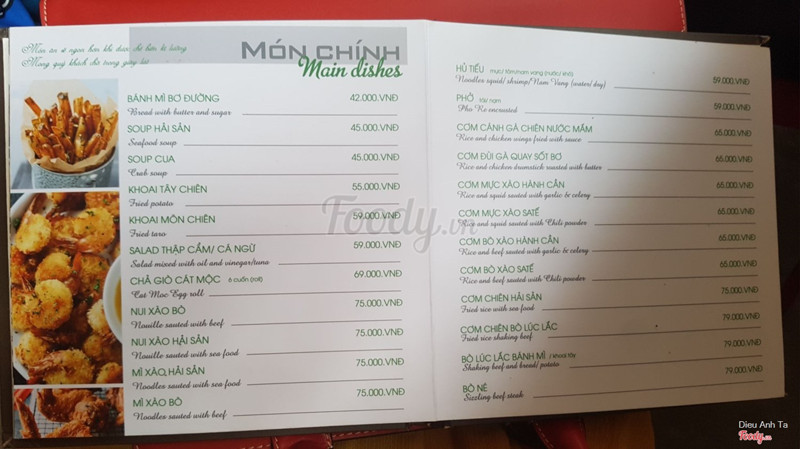 Món ăn sẽ ngon hơn khi được chế biến kĩ lưỡng
Mong quý khách chờ trong giây lát
MÓN CHÍNH
Main dishes
BÁNH MÌ BƠ ĐƯỜNG 42.000.VNĐ
Bread with butter and sugar
SOUP HẢI SẢN 45.000.VNĐ
Seafood soup
SOUP CUA 45.000.VNĐ
Crab soup
KHOAI TÂY CHIÊN 55.000.VNĐ
Fried potato
KHOAI MÔN CHIÊN 59.000.VNĐ
Fried taro
SALAD THẬP CẨM/ CÁ NGỪ 59.000.VNĐ
Salad mixed with oil and vinegar/tuna
CHẢ GIÒ CÁT MỘC 8 cuốn (roll) 69.000.VNĐ
Cat Moc Egg roll
NUI XÀO BÒ 75.000.VNĐ
Nouille sauted with beef
NUI XÀO HẢI SẢN 75.000.VNĐ
Nouille sauted with sea food
MÌ XÀO HẢI SẢN 75.000.VNĐ
Noodles sauted with sea food
MÌ XÀO BÒ 75.000.VNĐ
Noodles sauted with beef
HỦ TIẾU mực/ tôm/nam vang (nước/ khô) 59.000.VNĐ
Noodles squid/ shrimp/Nam Vang (water/ dry)
PHỞ tái/ nạm 59.000.VNĐ
Pho Re encrusted
CƠM CÁNH GÀ CHIÊN NƯỚC MẮM 65.000.VNĐ
Rice and chicken wings fried with sauce
CƠM ĐÙI GÀ QUAY SỐT BƠ 65.000.VNĐ
Rice and chicken drumstick roasted with butter
CƠM MỰC XÀO HÀNH CẦN 65.000.VNĐ
Rice and squid sauted with garlic & celery
CƠM MỰC XÀO SATẾ 65.000.VNĐ
Rice and squid sauted with Chili powder
CƠM BÒ XÀO HÀNH CẦN 65.000.VNĐ
Rice and beef sauted with garlic & celery
CƠM BÒ XÀO SATẾ 65.000.VNĐ
Rice and beef sauted with Chili powder
CƠM CHIÊN HẢI SẢN 75.000.VNĐ
Fried rice with sea food
CƠM CHIÊN BÒ LÚC LẮC 79.000.VNĐ
Fried rice shaking beef
BÒ LÚC LẮC BÁNH MÌ / khoai tây 79.000.VNĐ
Shaking beef and bread/ potato
BÒ NÉ 79.000.VNĐ
Sizzling beef steak
Foody.vn
Dieu Anh Ta
Foody.vn